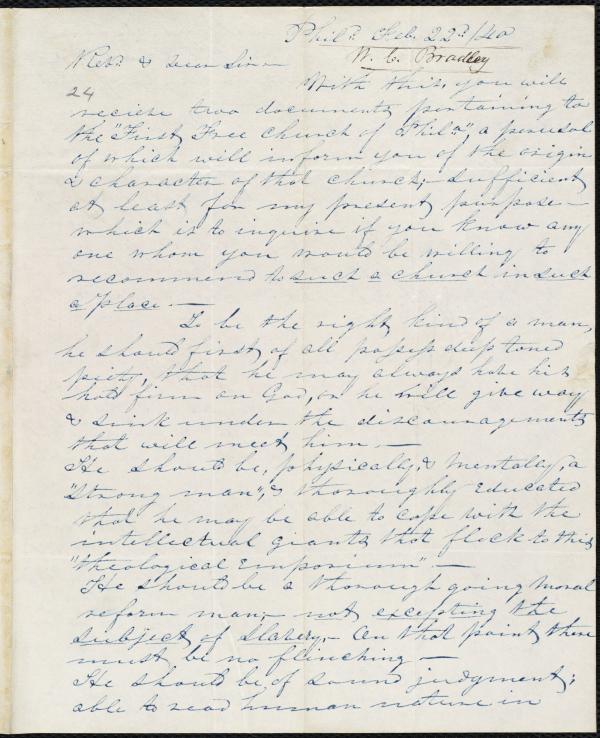 Phila. Feb. 22d/40
W. C. Bradley
Revd. & Dear Sir—
24
With this, you will
recieve two documents pertaining to
the "First Free Church of Phila.", a perusal
of which will inform you of the origin
& character of that church;- sufficient
at least for my present purpose—
which is to inquire if you know any
one whom you would be willing to
recommend to such a church in such
a place.—
To be the right kind of a man,
he should first of all possess deep toned
piety, that he may always have his
hold firm on God, or he will give way
& sink under the discouragements
that will meet him.—
He should be, physically, & mentally, a
"strong man", & thoroughly educated
that he may be able to cope with the
intellectual giants that flock to this
"theological Emporium".—
He should be a thorough going moral
reform man,- not excepting the
subject of slavery,- On that point there
must be no flinching—
He should be of sound judgment;
able to read human nature in